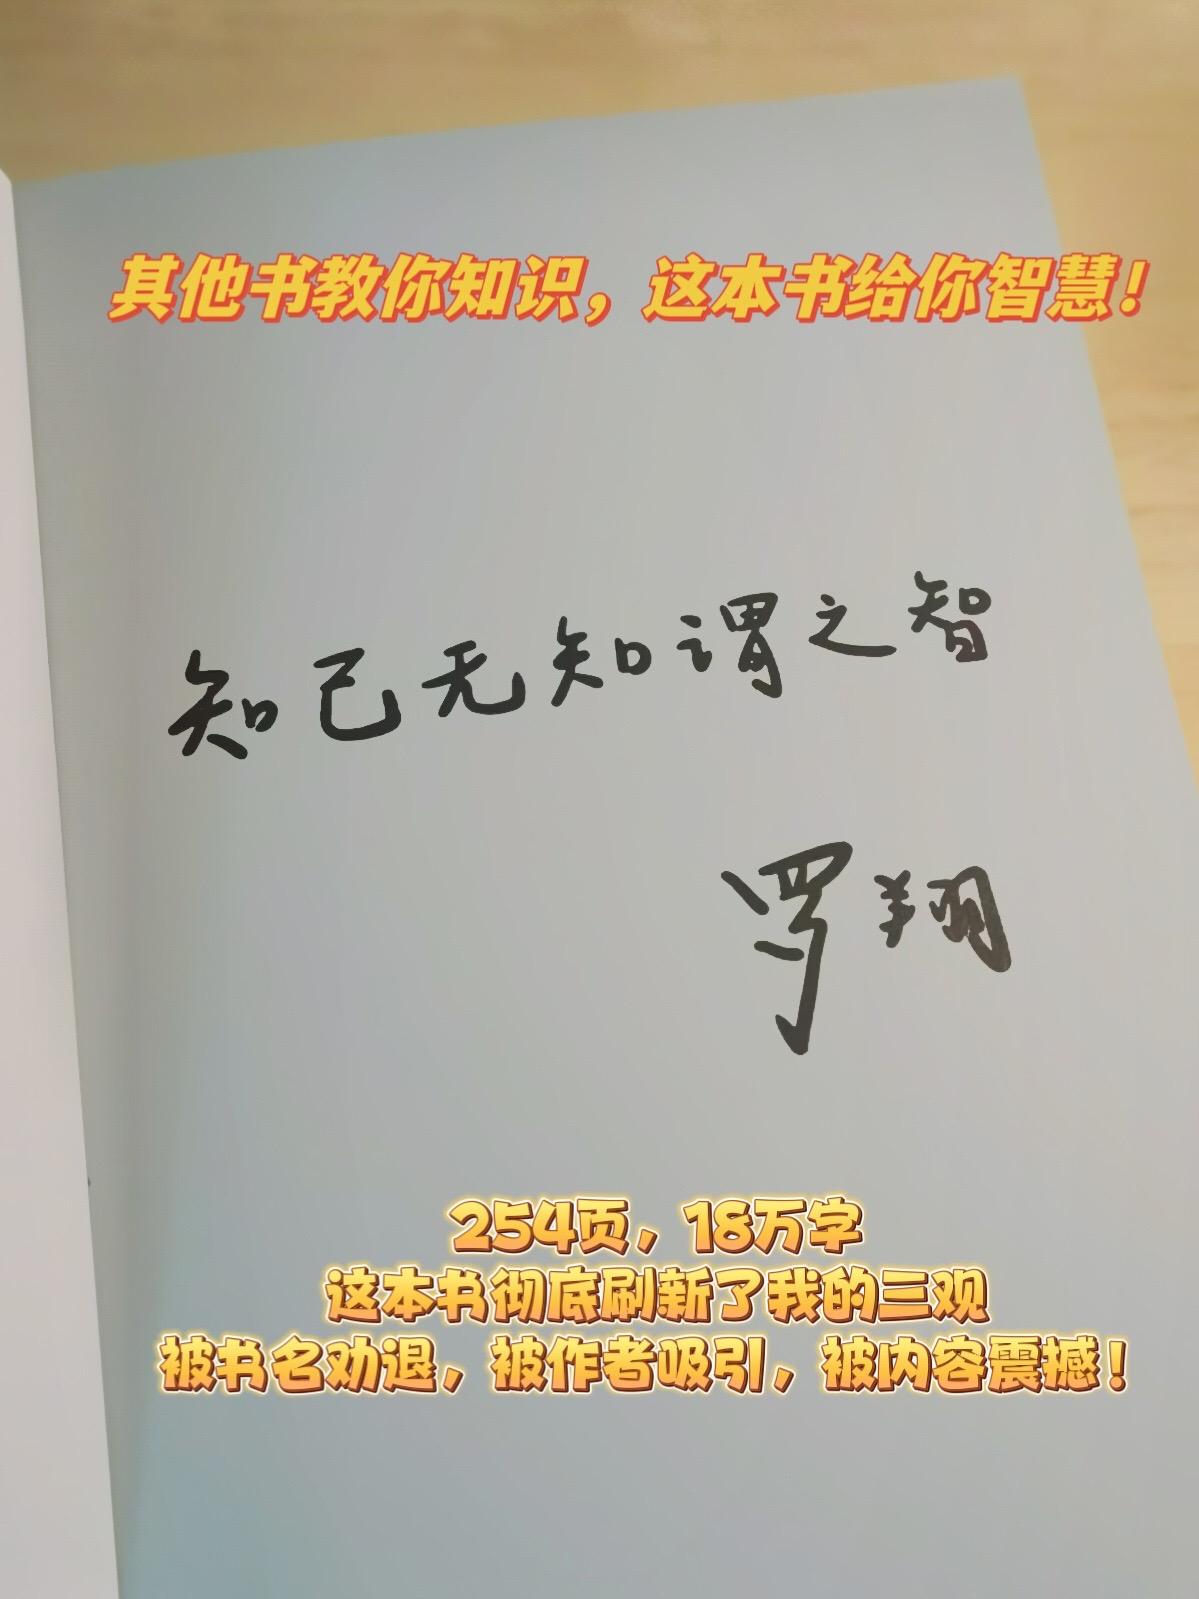 其他书教你知识，这本书给你智慧！
知己无知谓之智
罗翔
254页，18万字
这本书彻底刷新了我的三观
被书名劝退，被作者吸引，被内容震撼！